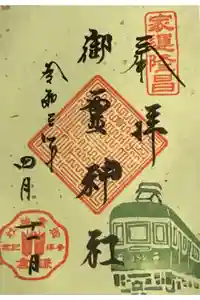 家運隆昌
奉拝
御霊神社
令和三年
四月十一日